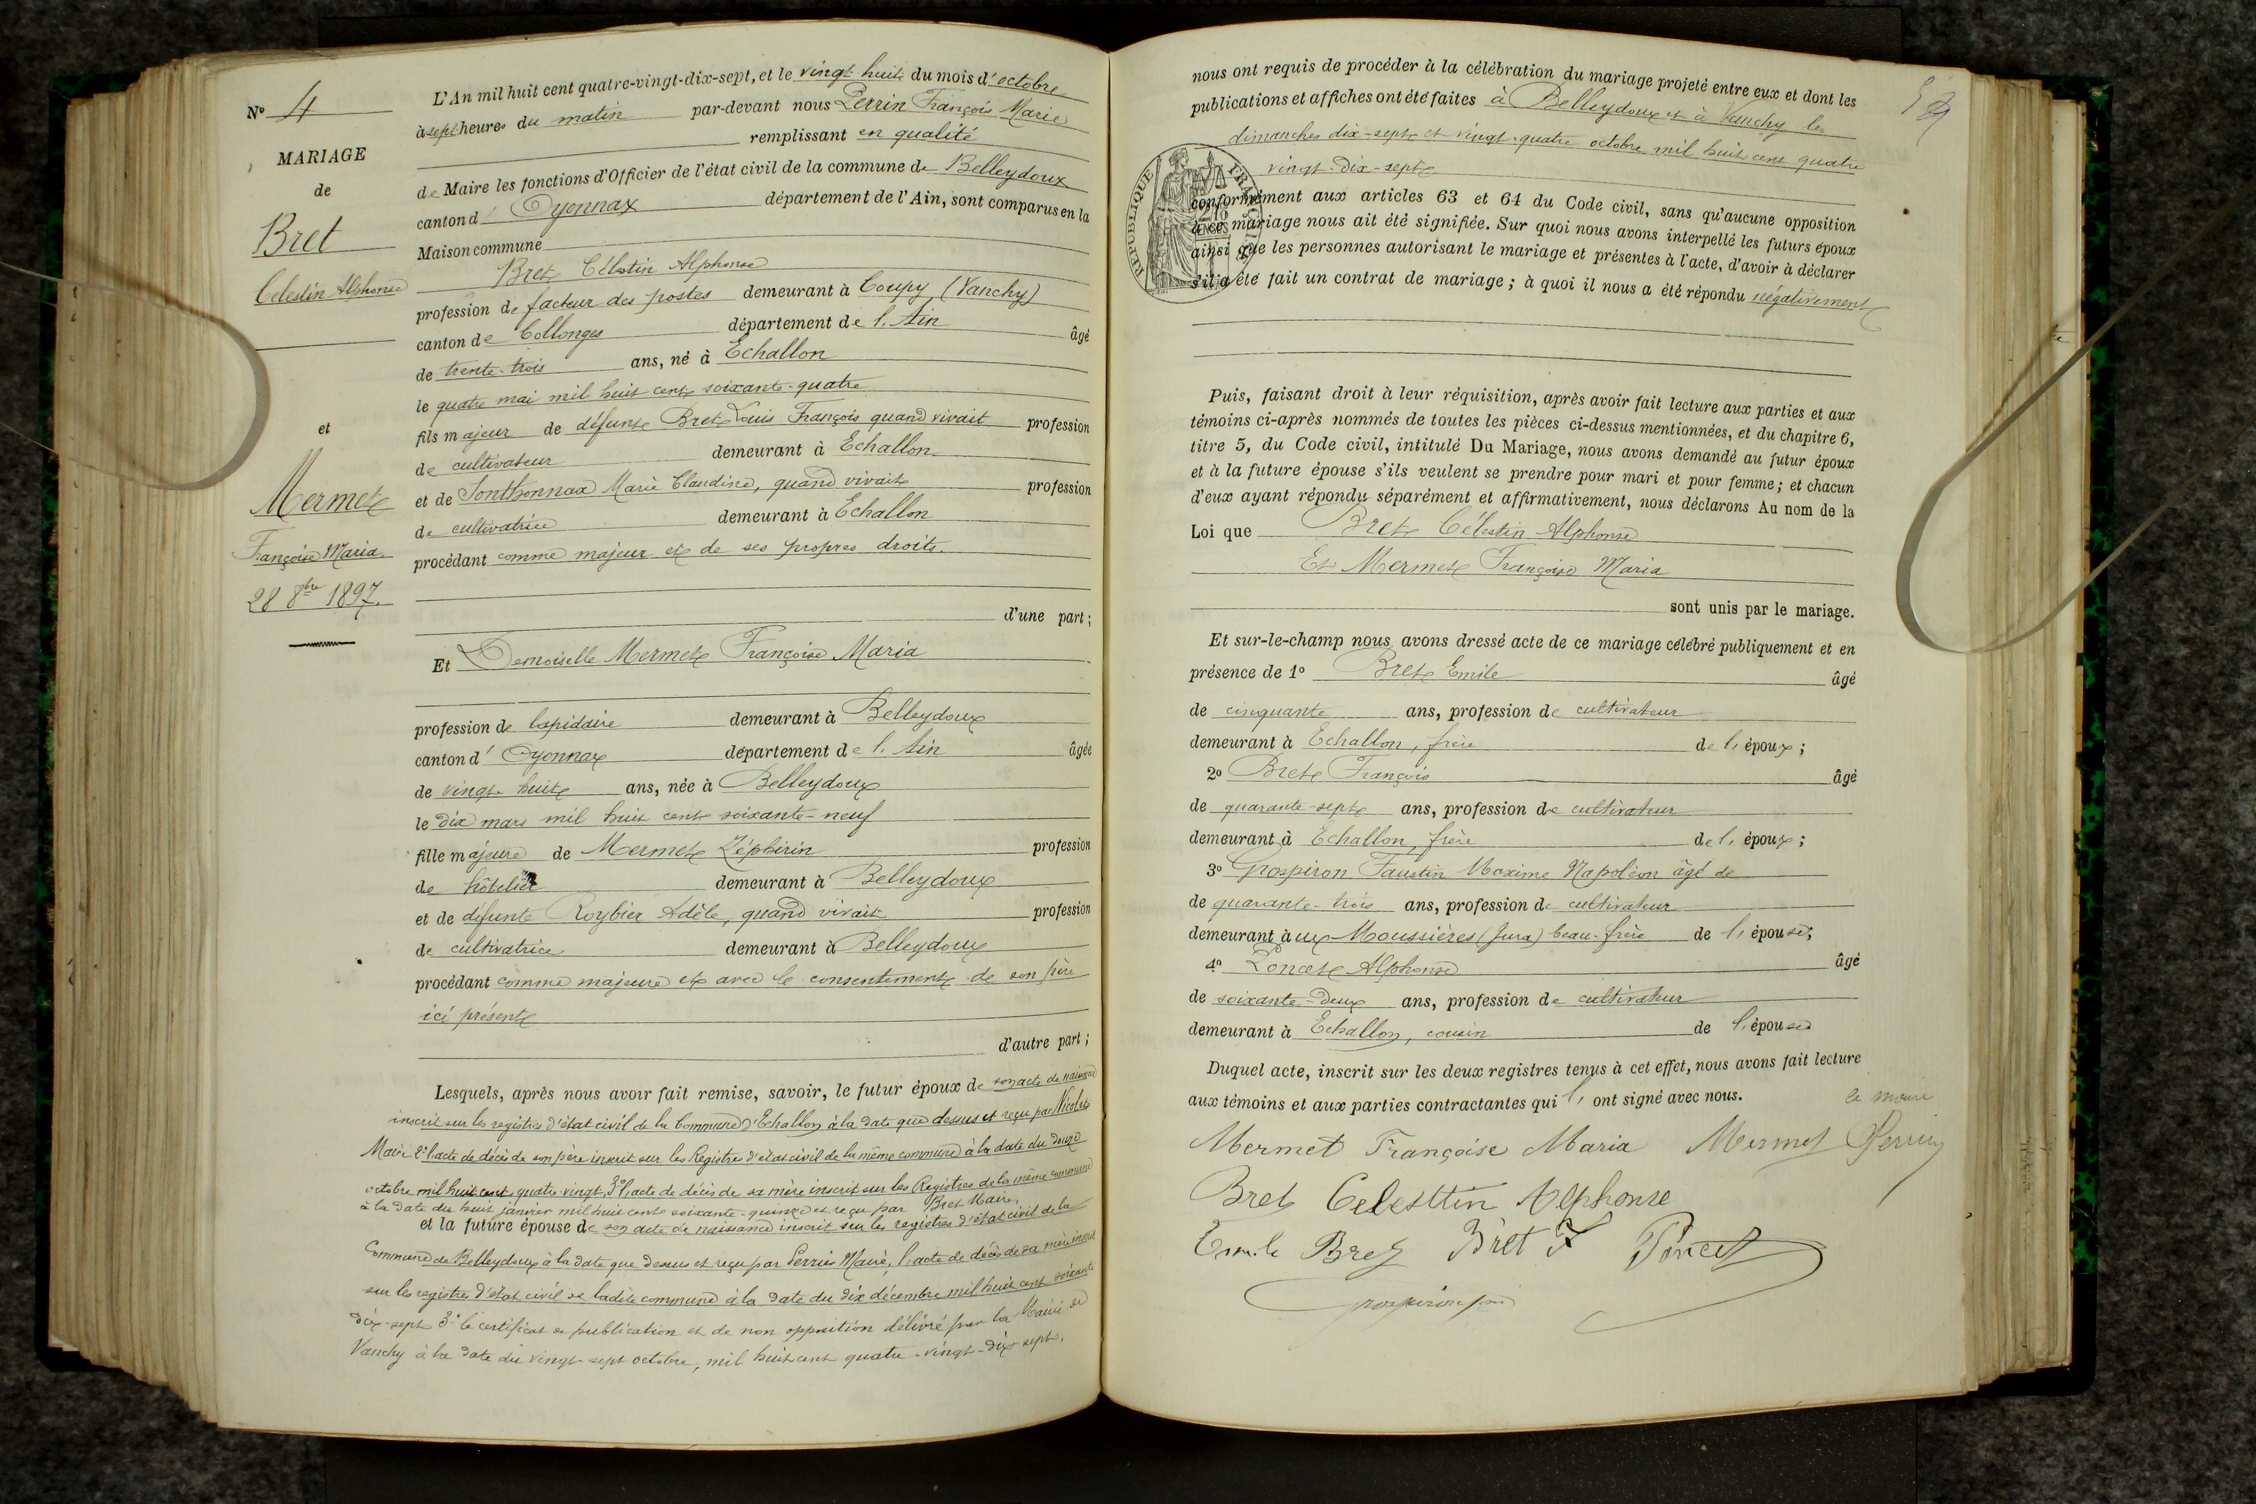 N° 4
MARIAGE
de
Bret
Célestin Alphonse
et
Mermet
Françoise Maria
28 8bre 1897.
L'An mil huit cent quatre-vingt-dix-sept, et le vingt huit du mois d'octobre
à sept heures du matin par-devant nous Perrin François Marie
remplissant en qualité
de Maire les fonctions d'Officier de l'état civil de la commune de Belleydoux
canton d' Oyonnax département de l'Ain, sont comparus en la
Maison commune
Bret Célestin Alphonse
profession de facteur des postes demeurant à Coupy (Vanchy)
canton de Collonges département de l'Ain âgé
de trente-trois ans, né à Echallon
le quatre mai mil huit cent soixante-quatre
fils majeur de défunt Bret Louis François quand vivait profession
de cultivateur demeurant à Echallon
et de Sonthonnax Marie Claudine, quand vivait profession
de cultivatrice demeurant à Echallon
procédant comme majeur et de ses propres droits.
d'une part;
Et Demoiselle Mermet Françoise Maria
profession de lapidaire demeurant à Belleydoux
canton d' Oyonnax département de l'Ain âgée
de vingt-huit ans, née à Belleydoux
le dix mars mil huit cent soixante-neuf
fille majeure de Mermet Zéphirin profession
de hôtelier demeurant à Belleydoux
et de défunte Roybier Adèle, quand vivait profession
de cultivatrice demeurant à Belleydoux
procédant comme majeure et avec le consentement de son père
ici présent
d'autre part;
Lesquels, après nous avoir fait remise, savoir, le futur époux de son acte de naissance
inscrit sur les registres d'état civil de la commune d'Echallon à la date que dessus et reçu par Nicolet
Maire 2° l'acte de décès de son père inscrit sur les Registres d'état civil de la même commune à la date du douze
octobre mil huit cent quatre-vingt, 3° l'acte de décès de sa mère inscrit sur les Registres de la même commune
à la date du huit janvier mil huit cent soixante-quinze et reçu par Bret Maire,
et la future épouse de son acte de naissance inscrit sur les registres d'état civil de la
Commune de Belleydoux à la date que dessus et reçu par Perrin Maire, l'acte de décès de sa mère inscrit
sur les registres d'état civil de ladite commune à la date du dix décembre mil huit cent soixante
dix-sept 3° le certificat de publication et de non opposition délivré par la Mairie de
Vanchy à la date du vingt-sept octobre, mil huit cent quatre-vingt-dix sept.
nous ont requis de procéder à la célébration du mariage projeté entre eux et dont les
publications et affiches ont été faites à Belleydoux et à Vanchy les
dimanches dix-sept et vingt-quatre octobre mil huit cent quatre
vingt-dix-sept
RÉPUBLIQUE FRANÇAISE
CENTIMES
conformément aux articles 63 et 64 du Code civil, sans qu'aucune opposition
à ce mariage nous ait été signifiée. Sur quoi nous avons interpellé les futurs époux
ainsi que les personnes autorisant le mariage et présentes à l'acte, d'avoir à déclarer
s'il a été fait un contrat de mariage; à quoi il nous a été répondu négativement
Puis, faisant droit à leur réquisition, après avoir fait lecture aux parties et aux
témoins ci-après nommés de toutes les pièces ci-dessus mentionnées, et du chapitre 6,
titre 5, du Code civil, intitulé Du Mariage, nous avons demandé au futur époux
et à la future épouse s'ils veulent se prendre pour mari et pour femme; et chacun
d'eux ayant répondu séparément et affirmativement, nous déclarons Au nom de la
Loi que Bret Célestin Alphonse
Et Mermet Françoise Maria
sont unis par le mariage.
Et sur-le-champ nous avons dressé acte de ce mariage célébré publiquement et en
présence de 1° Bret Emile âgé
de cinquante ans, profession de cultivateur
demeurant à Echallon, frère de l'époux;
2° Bret François âgé
de quarante-sept ans, profession de cultivateur
demeurant à Echallon, frère de l'époux;
3° Grospiron Faustin Maxime Napoléon âgé de
de quarante-trois ans, profession de cultivateur
demeurant aux Moussières (Jura) beau-frère de l'épouse;
4° Poncet Alphonse âgé
de soixante-deux ans, profession de cultivateur
demeurant à Echallon, cousin de l'épouse
Duquel acte, inscrit sur les deux registres tenus à cet effet, nous avons fait lecture
aux témoins et aux parties contractantes qui l' ont signé avec nous.
le maire
Mermet Françoise Maria Mermet Perrin
Bret Celesttin Alphonse
Emile Bret Bret F Poncet